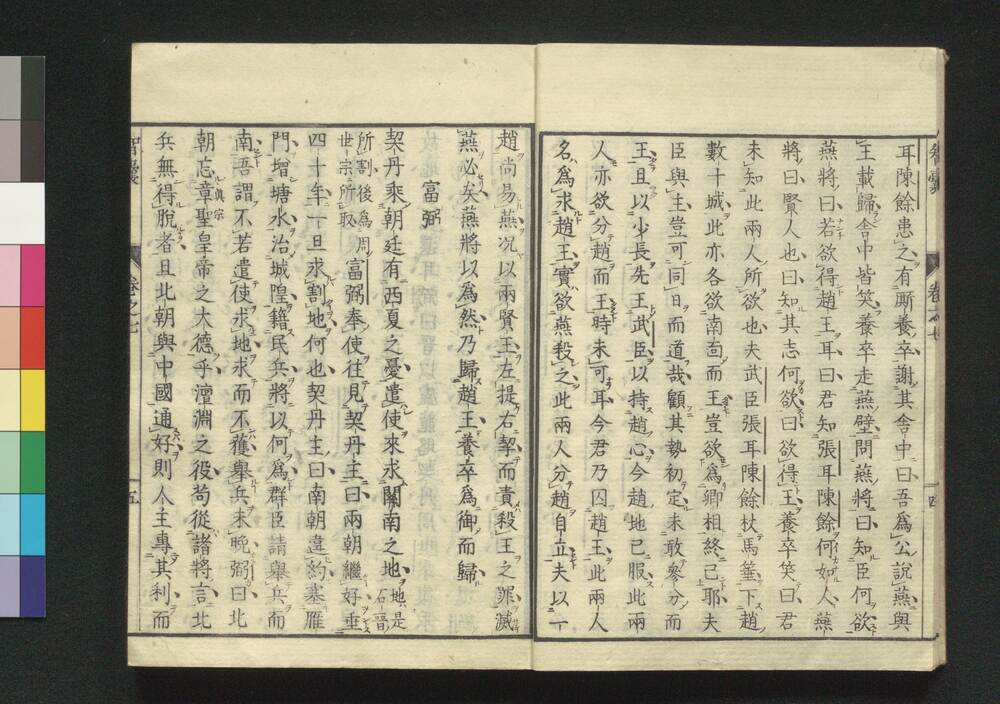 耳陳餘患之有厮養卒謝其舍中曰吾爲公說燕與
王載歸舍中皆笑養卒走燕壁問燕將曰知臣何欲
燕將曰若欲得趙王耳曰君知張耳陳餘何如人燕
將曰賢人也曰知其志何欲曰欲得王養卒笑曰君
未知此兩人所欲也夫武臣張耳陳餘杖馬箠下趙
數十城此亦各欲南面而王豈欲爲卿相終己耶夫
臣與主豈可同日而道哉顧其勢初定未敢參分而
王且以少長先王武臣以持趙心今趙地已服此兩
人亦欲分趙而王時未可耳今君乃囚趙王此兩人
名爲求趙王實欲燕殺之此兩人分趙自立夫以一
卷之七
四
趙尚易燕况以兩賢王左提右挈而責殺王之罪滅
燕必矣燕將以爲然乃歸趙王養卒爲御而歸
富弼
契丹乘朝廷有西夏之憂遣使來求關南之地地是石晋
所割後爲周世宗所取富弼奉使往見契丹主曰兩朝繼好垂
四十年一旦求割地何也契丹主曰南朝違約塞雁
門增塘水治城隍籍民兵將以何爲群臣請舉兵而
南吾謂不若遣使求地求而不獲舉兵未晚弼曰北
朝忘章聖皇帝之大德乎澶淵之役苟從諸將言北
眞宗
兵無得脫者且北朝與中國通好則人主專其利而
智囊
卷之七
五